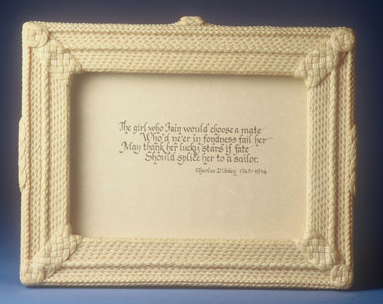 The girl who fain would choose a mate
Who'd ne'er in fondness fail her
May thank her lucky stars if fate
Should splice her to a sailor.
Charles Dibdin 1745-1814